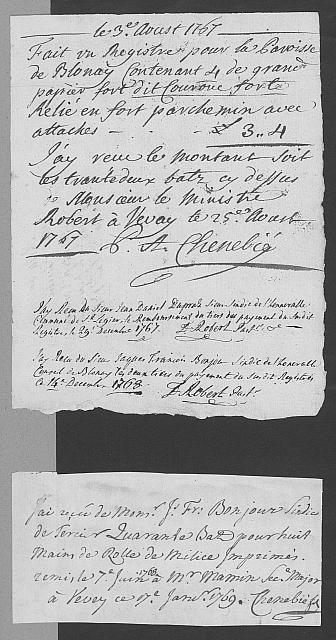 le 3e Aoust 1767
Fait un Registre pour la Paroisse
de Blonay Contenant 4 de grand
papier fort dit Couronne forte
Relié en fort parchemin avec
attaches - - - 3..4
J'ay reçu le montant Soit
les trante deux batz cy dessus
de Monsieur le Ministre
Robert à Vevay le 25e Aoust
1767 Chenebié
J'ay Reçu du Sieur Jean Daniel Sieur Sindic de l'honorable
Commune de St Legier le Remboursement du tiers des payement du Susdit
Registre, le 29e Decembre 1767. Robert
J'ay Reçu du Sieur Jaques François Bonjour Sindic de l'honorable
Conseil de Blonay les deux tiers du payement du Susdit Registre
Ce 14e Decembre 1768 Robert
J'ai reçu de Monsr Js Frs Bonjour Sindic
de Quarante Batz pour huit
Mains de Rolle de Milice Imprimé
remis le 7e Juin 1768 à Mr Mamin Major
à Vevey ce 17e Janvr 1769. Chenebié